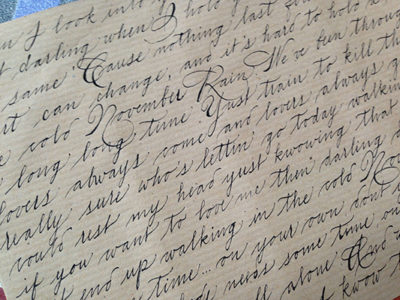 n I look into y
t darling when I hold y
same 'Cause nothing last for
rt can change, and it's hard to hold a
e cold November Rain We've been through
long long time Just train to kill the
lovers always come and lovers always g
really sure who's lettin' go today walking
could rest my head just knowing that
if you want to love me then darling d
t end up walking in the cold Nov
time... on your own don't
body needs some time on
all alone And
t know t